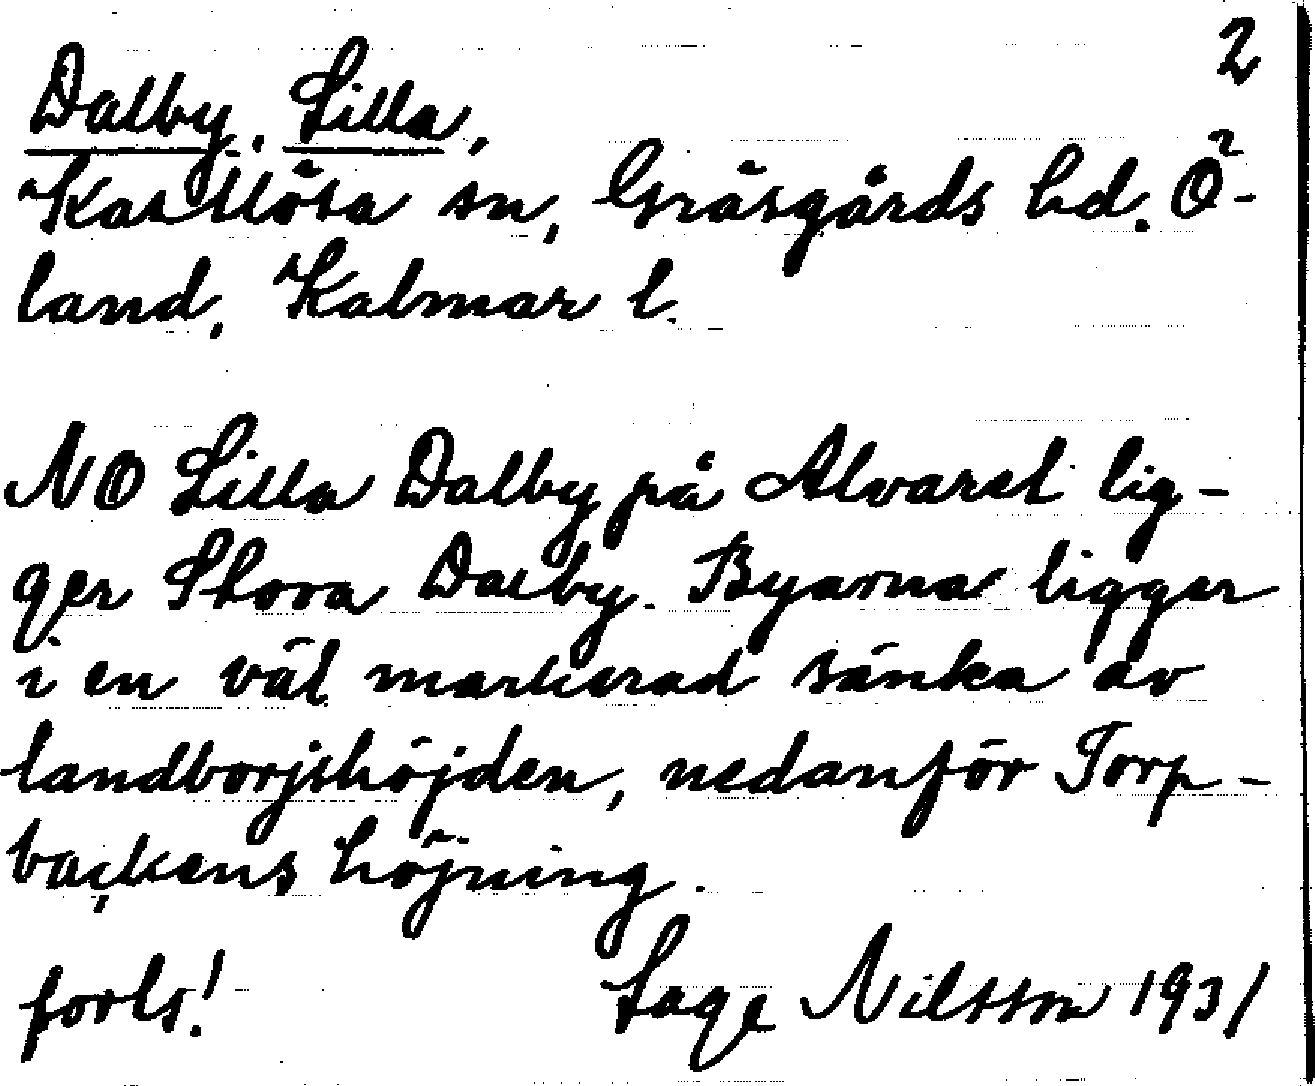 2
Dalby, Lilla,
Kastlösa sn, Gräsgårds hd. Ö-
land, Kalmar l.
NO Lilla Dalby på Alvaret lig-
ger Stora Dalby. Byarna ligger
i en väl markerad sänka av
landborjshöjden, nedanför Torp-
backens höjning.
forts! Sage Nilsson 1931